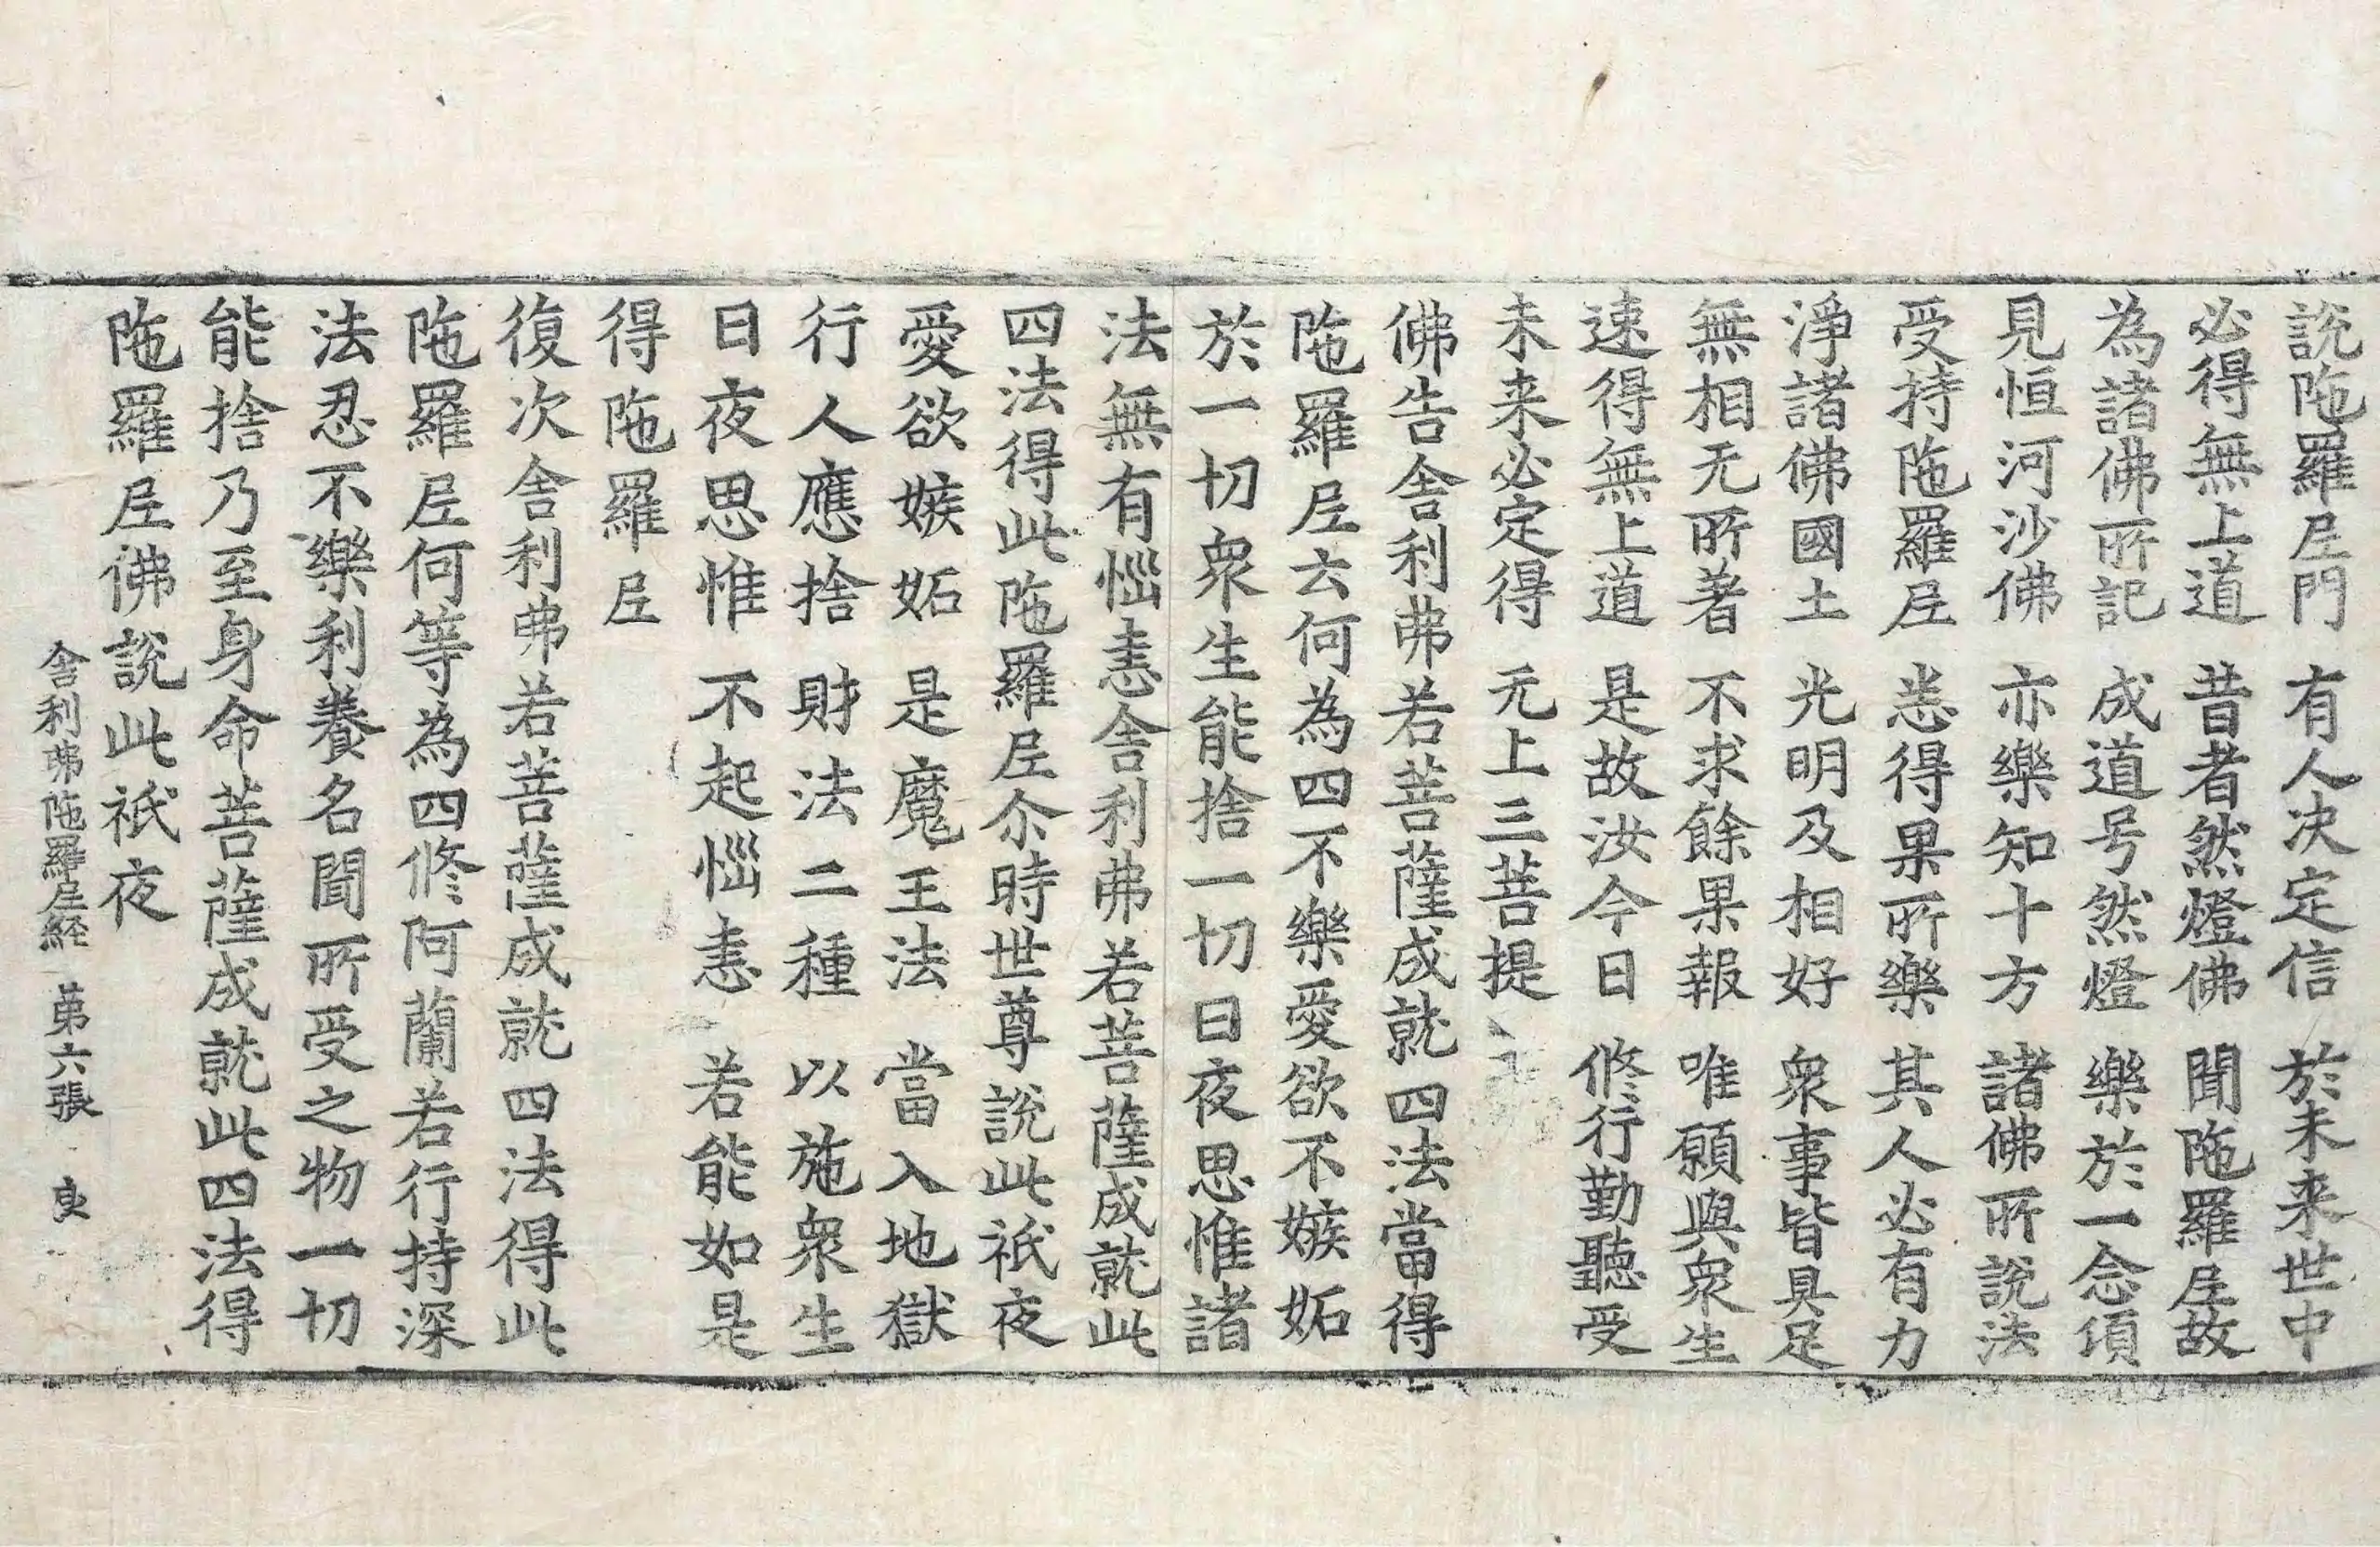 說陁羅𡰱門　有人决定信　於未来世中
必得無上道　昔者然燈佛　聞陁羅𡰱故
為諸佛所記　成道号然燈　樂於一念須
見恒河沙佛　亦樂知十方　諸佛所說法
受持陁羅𡰱　悉得果所樂　其人必有力
淨諸佛國土　光明及相好　衆事皆具足
無相无所著　不求餘果報　唯願與衆生
速得無上道　是故汝今日　修行勤聽受
未来必定得　无上三菩提
佛告舍利弗若菩薩成就四法當得
陁羅𡰱云何為四不樂愛欲不嫉妬
於一切衆生能捨一切日夜思惟諸
法無有惱恚舍利弗若菩薩成就此
四法得此陁羅𡰱尒時世尊說此祇夜
愛欲嫉妬　是魔王法　當入地獄
行人應捨　財法二種　以施衆生
日夜思惟　不起惱恚　若能如是
得陁羅𡰱
復次舍利弗若菩薩成就四法得此
陁羅𡰱何等為四修阿蘭若行持深
法忍不樂利養名聞所受之物一切
能捨乃至身命菩薩成就此四法得
陁羅𡰱佛說此祇夜
舍利弗陁羅𡰱経　苐六張　良